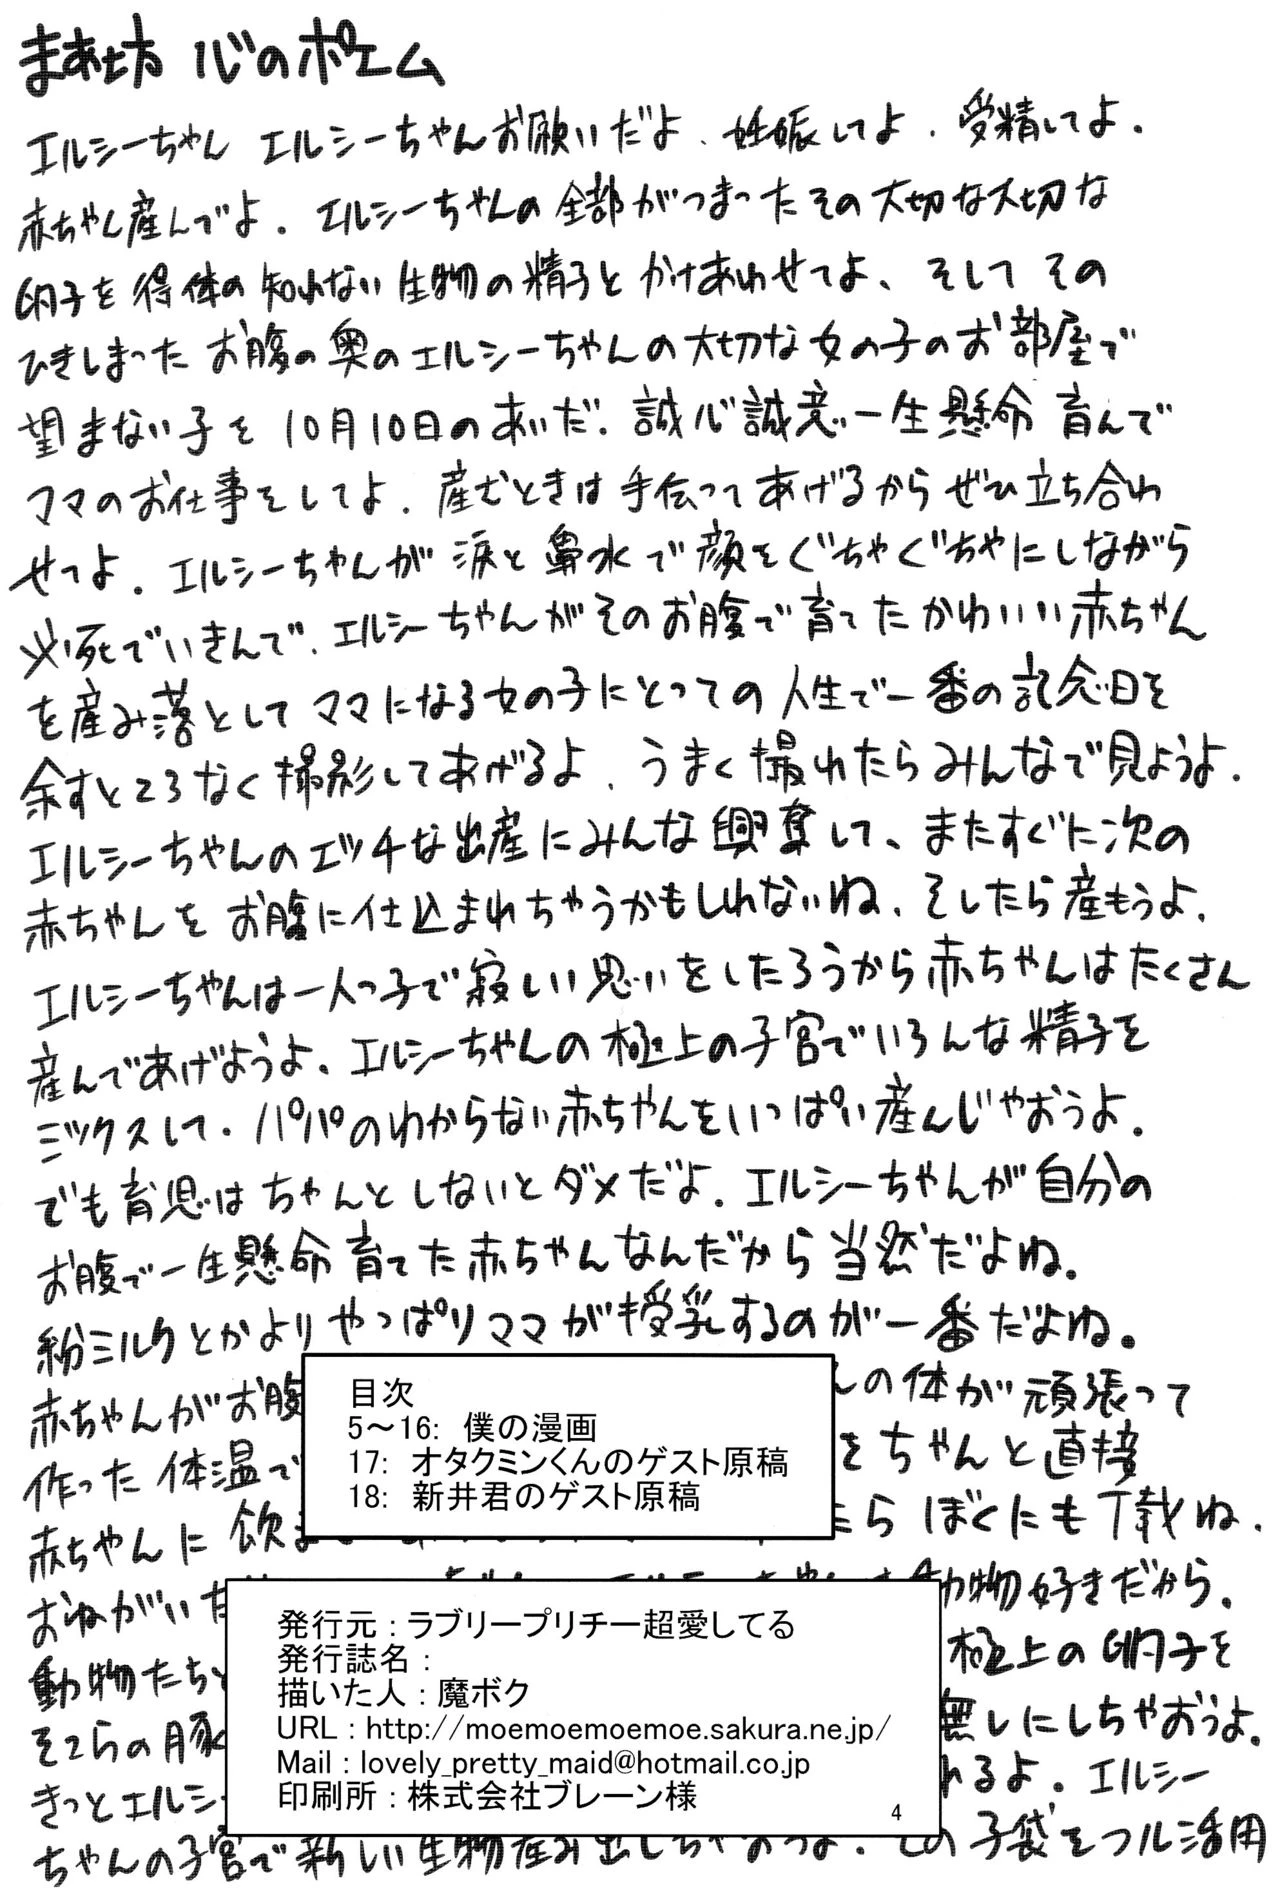 まあ坊 心のポエム
エルシーちゃん エルシーちゃんお願いだよ、妊娠してよ、受精してよ。
赤ちゃん産んでよ。エルシーちゃんの全部がつまったその大切な大切な
卵子を得体の知れない生物の精子とかけあわせてよ、そしてその
ひきしまったお腹の奥のエルシーちゃんの大切な女の子のお部屋で
望まない子を10月10日のあいだ、誠心誠意一生懸命育んで
ママのお仕事をしてよ。産むときは手伝ってあげるからぜひ立ち合わ
せてよ。エルシーちゃんが涙と鼻水で顔をぐちゃぐちゃにしながら
必死でいきんで、エルシーちゃんがそのお腹で育てたかわいい赤ちゃん
を産み落としてママになる女の子にとっての人生で一番の記念日を
余すところなく撮影してあげるよ、うまく撮れたらみんなで見ようよ。
エルシーちゃんのエッチな出産にみんな興奮して、またすぐに次の
赤ちゃんをお腹に仕込まれちゃうかもしれないね、そしたら産もうよ、
エルシーちゃんは一人っ子で寂しい思いをしたろうから赤ちゃんはたくさん
産んであげようよ、エルシーちゃんの極上の子宮でいろんな精子を
ミックスして、パパのわからない赤ちゃんをいっぱい産んじゃおうよ。
でも育児はちゃんとしないとダメだよ。エルシーちゃんが自分の
お腹で一生懸命育てた赤ちゃんなんだから当然だよね。
粉ミルクとかよりやっぱりママが授乳するのが一番だよね。
赤ちゃんがお腹 んの体が頑張って
作った体温で をちゃんと直接
赤ちゃんに飲 たらぼくにも下載ね、
おねがい 動物好きだから。
動物たちと 極上の卵子を
そこらの豚 無しにしちゃおうよ。
きっとエルシー れるよ。エルシー
ちゃんの子宮で新しい生物産み出しちゃおうよ。その子袋をフル活用
目次
5～16: 僕の漫画
17: オタクミンくんのゲスト原稿
18: 新井君のゲスト原稿
発行元：ラブリープリチー超愛してる
発行誌名：
描いた人：魔ボク
URL：http://moemoemoemoe.sakura.ne.jp/
Mail：lovely_pretty_maid@hotmail.co.jp
印刷所：株式会社ブレーン様
4